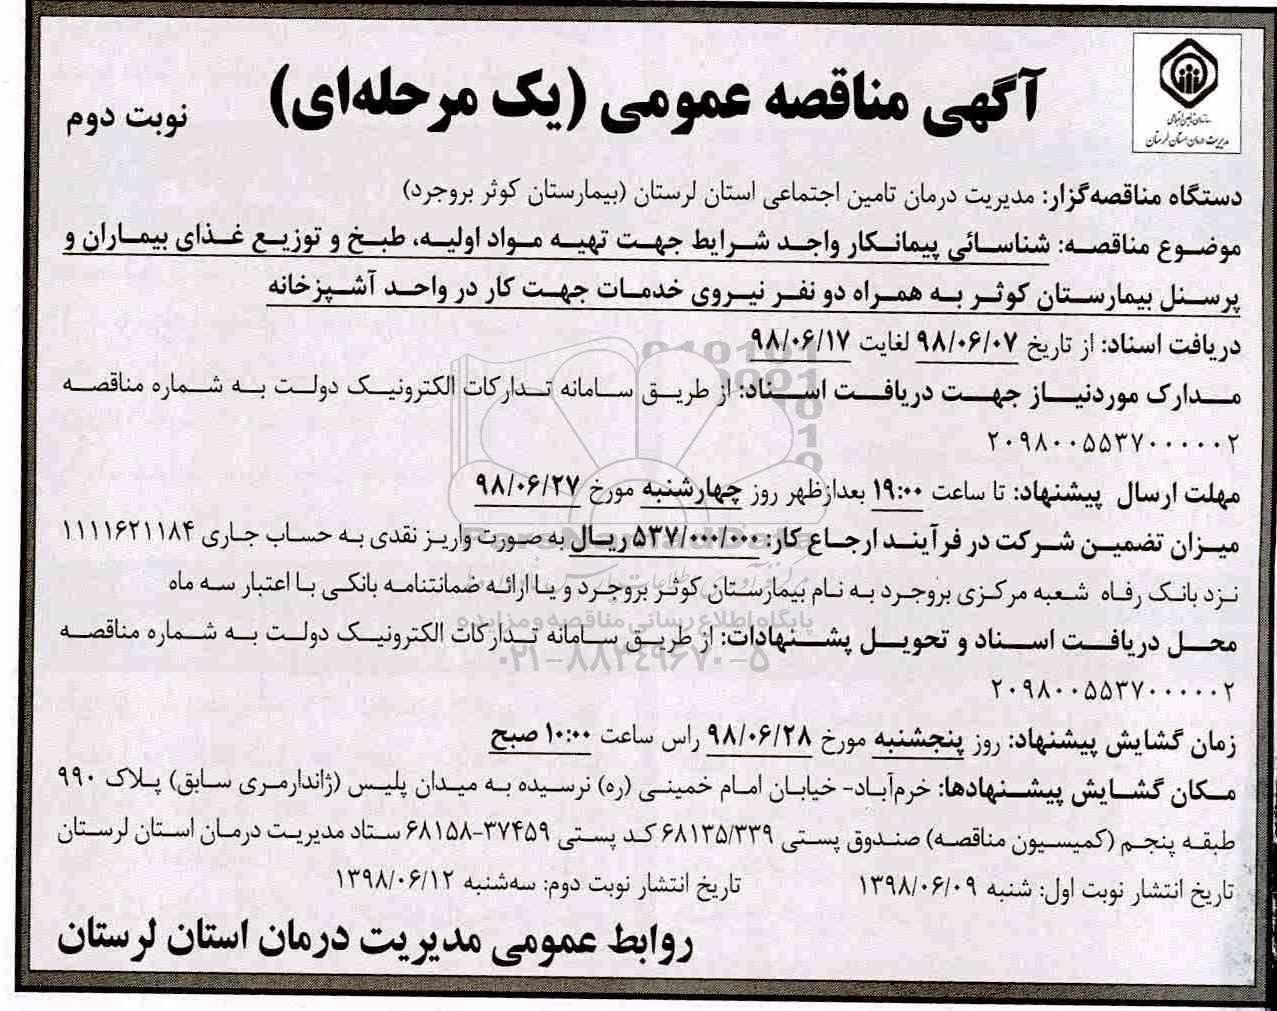 سازمان تامین اجتماعی
مدیریت درمان استان لرستان
آگهی مناقصه عمومی (یک مرحله‌ای)
نوبت دوم
دستگاه مناقصه‌گزار: مدیریت درمان تامین اجتماعی استان لرستان (بیمارستان کوثر بروجرد)
موضوع مناقصه: شناسائی پیمانکار واجد شرایط جهت تهیه مواد اولیه، طبخ و توزیع غذای بیماران و
پرسنل بیمارستان کوثر به همراه دو نفر نیروی خدمات جهت کار در واحد آشپزخانه
دریافت اسناد: از تاریخ ۹۸/۰۶/۰۷ لغایت ۹۸/۰۶/۱۷
مدارک موردنیاز جهت دریافت اسناد: از طریق سامانه تدارکات الکترونیک دولت به شماره مناقصه
۲۰۹۸۰۰۵۵۳۷۰۰۰۰۰۲
مهلت ارسال پیشنهاد: تا ساعت ۱۹:۰۰ بعدازظهر روز چهارشنبه مورخ ۹۸/۰۶/۲۷
میزان تضمین شرکت در فرآیند ارجاع کار: ۵۳۷/۰۰۰/۰۰۰ ریال به صورت واریز نقدی به حساب جاری ۱۱۱۱۶۲۱۱۸۴
نزد بانک رفاه شعبه مرکزی بروجرد به نام بیمارستان کوثر بروجرد و یا ارائه ضمانتنامه بانکی با اعتبار سه ماه
پایگاه اطلاع رسانی مناقصه و مزایده
محل دریافت اسناد و تحویل پشنهادات: از طریق سامانه تدارکات الکترونیک دولت به شماره مناقصه
۰۲۱-۸۸۳۴۹۶۷۰-۵
۲۰۹۸۰۰۵۵۳۷۰۰۰۰۰۲
زمان گشایش پیشنهاد: روز پنجشنبه مورخ ۹۸/۰۶/۲۸ راس ساعت ۱۰:۰۰ صبح
مکان گشایش پیشنهادها: خرم‌آباد- خیابان امام خمینی (ره) نرسیده به میدان پلیس (ژاندارمری سابق) پلاک ۹۹۰
طبقه پنجم (کمیسیون مناقصه) صندوق پستی ۶۸۱۳۵/۳۳۹ کد پستی ۳۷۴۵۹-۶۸۱۵۸ ستاد مدیریت درمان استان لرستان
تاریخ انتشار نوبت اول: شنبه ۱۳۹۸/۰۶/۰۹ تاریخ انتشار نوبت دوم: سه‌شنبه ۱۳۹۸/۰۶/۱۲
روابط عمومی مدیریت درمان استان لرستان